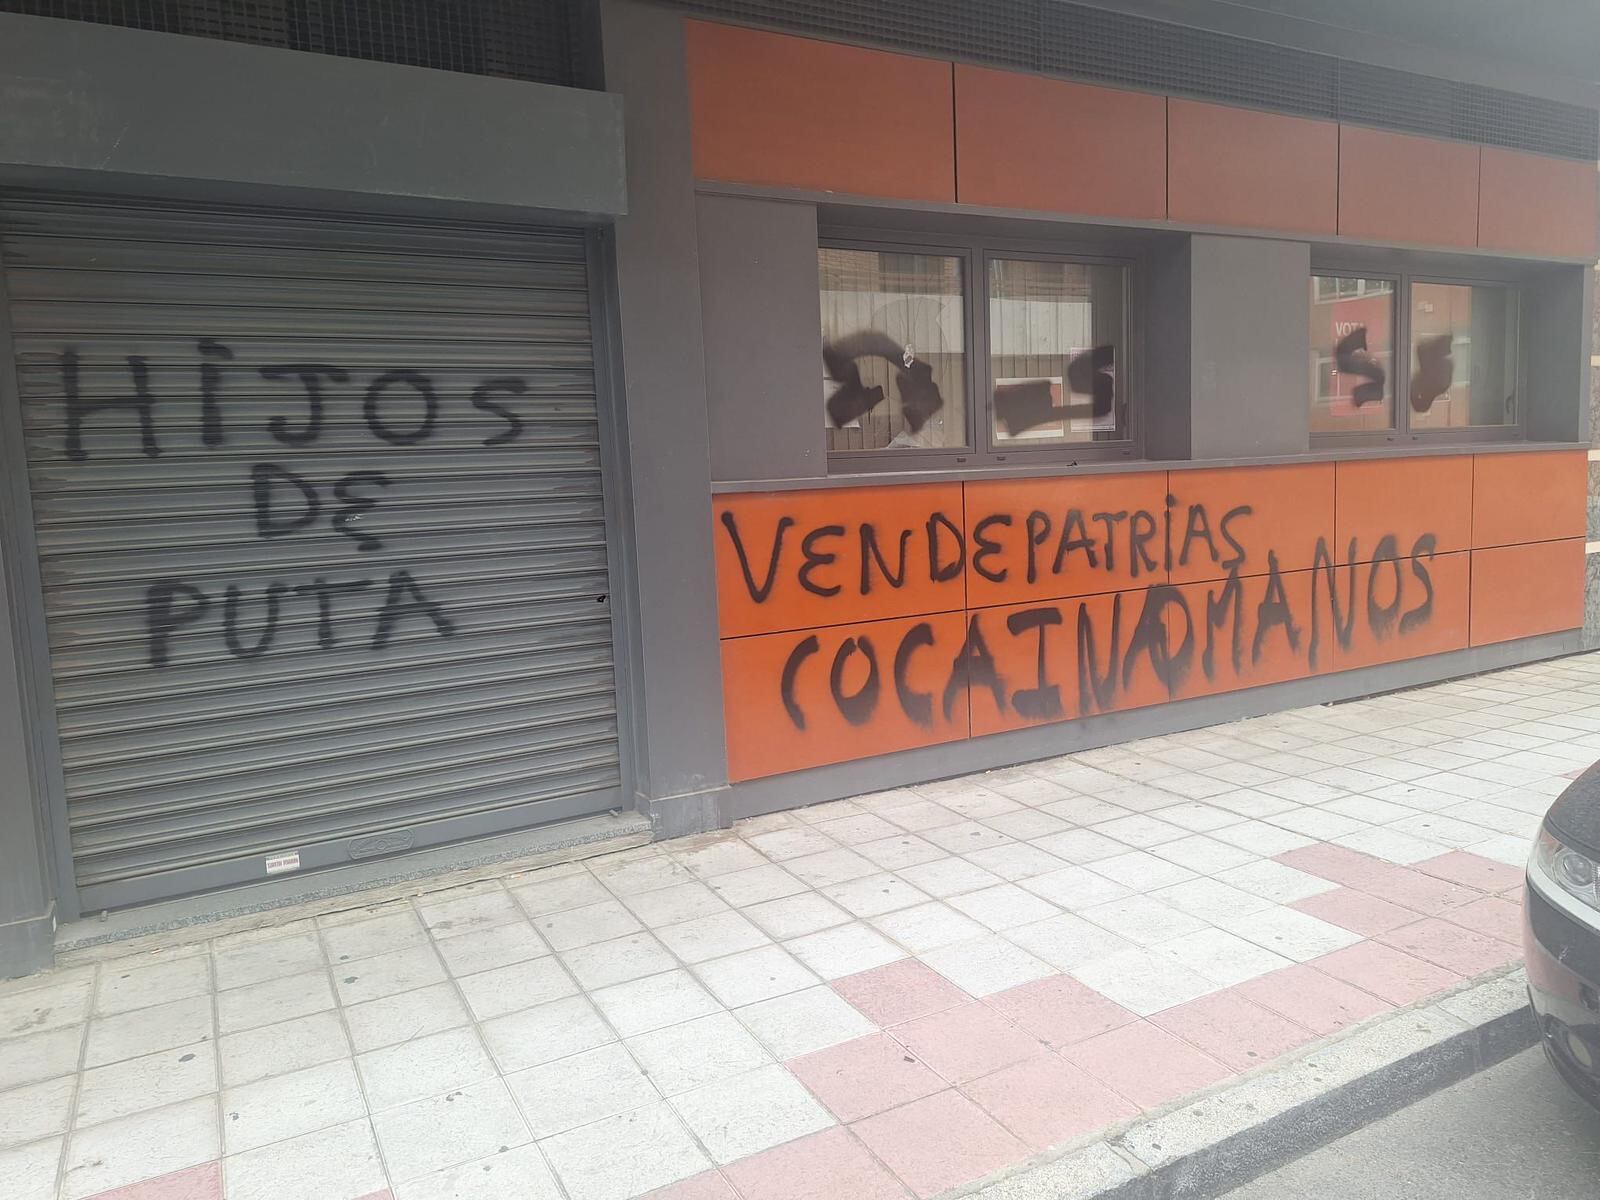 HiJOS
DE
PUTA
VENDEPATRiAS
COCAINOMANOS
VOTA